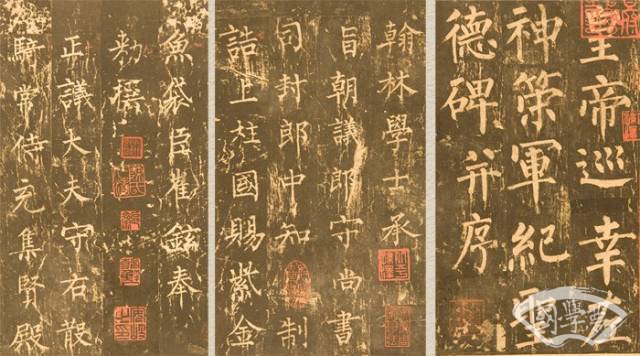 皇帝巡幸左
神策軍紀聖
德碑并序
翰林學士承
旨朝議郎守尚書
司封郎中知制
誥上柱國賜紫金
魚袋臣崔鉉奉
勑撰
正議大夫守右散
騎常侍充集賢殿
國學夢